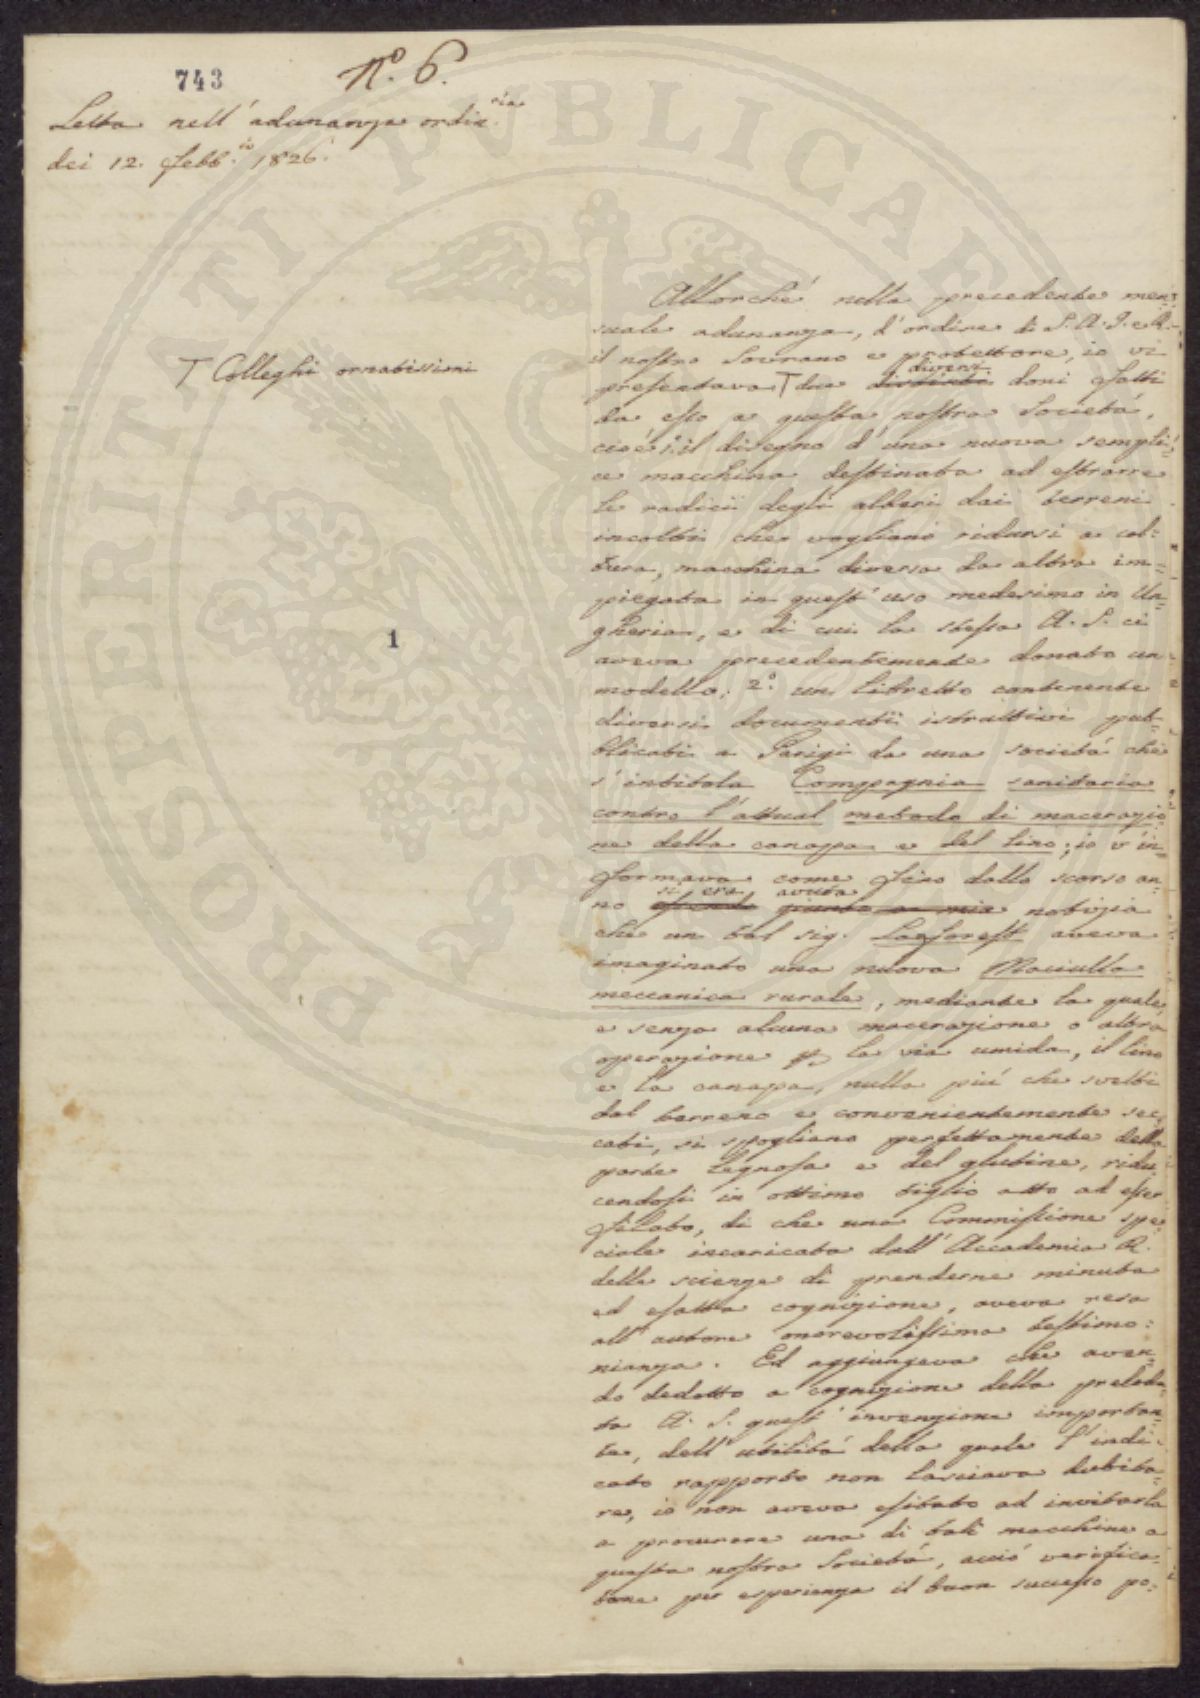 743
N.º 6.
Letta nell'adunanza ordin.ria
dei 12. Febb.io 1826.
T Colleghi ornatissimi
1
Allorché nella precedente men=
suale adunanza, d'ordine di S. A. I. e R.
il nostro Sovrano e protettore, io vi
diversi
presentava T due distinti doni fatti
da esso a questa nostra Società,
cioè 1.º il disegno d'una nuova sempli=
ce macchina destinata ad estrarre
le radici degli alberi dai terreni
incolti che vogliano ridursi a col=
tura, macchina diversa da altra im=
piegata in quest'uso medesimo in Un=
gheria, e di cui la stessa A. S. ci
aveva precedentemente donato un
modello; 2.º un libretto contenente
diversi documenti istruttivi pub=
blicati a Parigi da una società che
s'intitola Compagnia sanitaria
contro l'attual metodo di macerazio
ne della canapa e del lino; io v'in=
formava come fino dallo scorso an=
si era avuta
no essendo giunta a mia notizia
che un tal sig. Laforest aveva
imaginato una nuova Maciulla
meccanica rurale, mediante la quale,
e senza alcuna macerazione o altra
operazione p la via umida, il lino
e la canapa, nulla più che svelti
dal terreno e convenientemente sec
cati, si spogliano perfettamente della
parte legnosa e del glutine, ridu
cendosi in ottimo tiglio atto ad esser
filato, di che una Commissione spe
ciale incaricata dall'Accademia R.
delle scienze di prenderne minuta
ed esatta cognizione, aveva resa
all'autore onorevolissima testimo=
nianza. Ed aggiungeva che aven=
do dedotto a cognizione della preloda=
ta A. S. quest'invenzione importan=
te, dell'utilità della quale l'indi=
cato rapporto non lasciava dubita=
re, io non aveva esitato ad invitarla
a procurare una di tali macchine a
questa nostra Società, acciò verifica=
tone per esperienza il buon successo po=